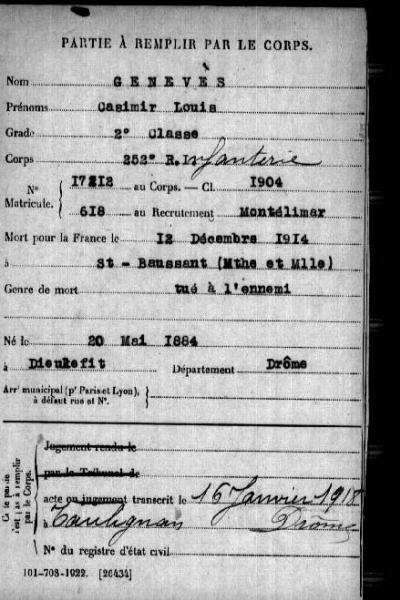 PARTIE À REMPLIR PAR LE CORPS.
Nom GENEVÈS
Prénoms Casimir Louis
Grade 2° Classe
Corps 252° R.Infanterie
N° Matricule. { 17212 au Corps. — Cl. 1904
618 au Recrutement Montélimar
Mort pour la France le 12 Décembre 1914
à St - Baussant (Mthe et Mlle)
Genre de mort tué à l'ennemi
Né le 20 Mai 1884
à Dieulefit Département Drôme
Arrt municipal (pr Paris et Lyon), à défaut rue et N°. }
Ce
n'est pas à remplir
par le Corps.
Jugement rendu le
par le Tribunal de
acte ou jugement transcrit le 16 Janvier 1918
à Taulignan Drôme
N° du registre d'état civil
101-708-1922. [26434]